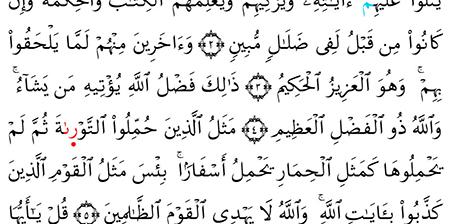 يَتْلُوا۟ عَلَيْهِمْ ءَايَـٰتِهِۦ وَيُزَكِّيهِمْ وَيُعَلِّمُهُمُ ٱلْكِتَـٰبَ وَٱلْحِكْمَةَ وَإِن
كَانُوا۟ مِن قَبْلُ لَفِى ضَلَـٰلٍ مُّبِينٍ ﴿٢﴾ وَءَاخَرِينَ مِنْهُمْ لَمَّا يَلْحَقُوا۟
بِهِمْ ۚ وَهُوَ ٱلْعَزِيزُ ٱلْحَكِيمُ ﴿٣﴾ ذَٰلِكَ فَضْلُ ٱللَّهِ يُؤْتِيهِ مَن يَشَآءُ ۚ
وَٱللَّهُ ذُو ٱلْفَضْلِ ٱلْعَظِيمِ ﴿٤﴾ مَثَلُ ٱلَّذِينَ حُمِّلُوا۟ ٱلتَّوْرَىٰةَ ثُمَّ لَمْ
يَحْمِلُوهَا كَمَثَلِ ٱلْحِمَارِ يَحْمِلُ أَسْفَارًۢا ۚ بِئْسَ مَثَلُ ٱلْقَوْمِ ٱلَّذِينَ
كَذَّبُوا۟ بِـَٔايَـٰتِ ٱللَّهِ ۚ وَٱللَّهُ لَا يَهْدِى ٱلْقَوْمَ ٱلظَّـٰلِمِينَ ﴿٥﴾ قُلْ يَـٰٓأَيُّهَا